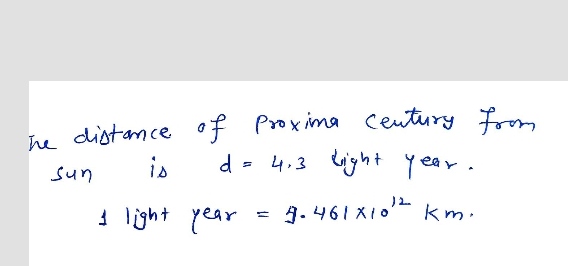 The distance of Proxima Century from
sun is d = 4.3 light year.
1 light year = 9.461 x 10¹² km.